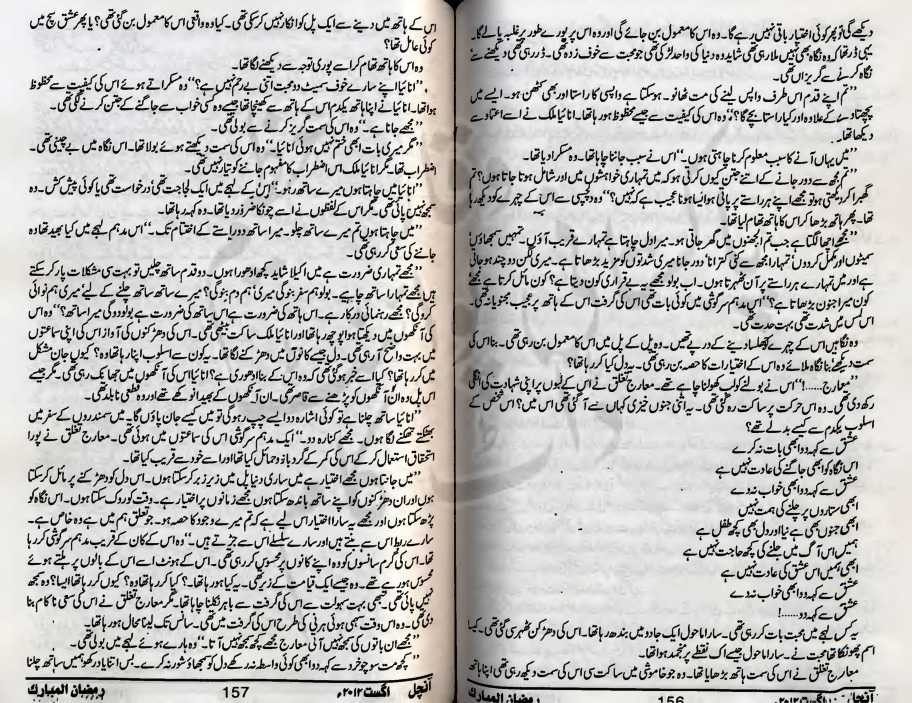 دیکھے گی تو پھر کوئی اختیار باقی نہیں رہے گا۔ وہ اس کا معمول بن جائے گی اور وہ اس پر پورے طور پر غلبہ پا لے گا۔
یہی ڈر تھا کہ وہ نگاہ بھی نہیں ملا رہی تھی شاید وہ دنیا کی واحد لڑکی تھی جو محبت سے خوف زدہ تھی۔ ڈر رہی تھی دیکھنے سے
نگاہ کرنے سے گریزاں تھی۔
”تم اپنے قدم اس طرف واپس لینے کی مت ٹھانو۔ ہوسکتا ہے واپسی کا راستا اور بھی کٹھن ہو۔ ایسے میں
پچھتاوے کے علاوہ اور کیا راستا بچے گا؟“ وہ اس کی کیفیت سے جیسے محظوظ ہو رہا تھا۔ انائیا ملک نے اسے اعتماد سے
دیکھا تھا۔
”میں یہاں آنے کا سبب معلوم کرنا چاہتی ہوں۔“ اس نے سبب جاننا چاہا تھا۔ وہ مسکرا دیا تھا۔
”تم مجھ سے دور جانے کے اتنے جتن کیوں کرتی ہو کہ میں تمہاری خواہشوں میں اور شامل ہوتا جاتا ہوں؟ تم
گھبرا کر دیکھتی ہو تو مجھے اپنے ہر راستے پر پاتی ہو ایسا ہونا عجیب ہے کہ نہیں؟“ وہ دلچسپی سے اس کے چہرے کو دیکھ رہا
تھا۔ پھر ہاتھ بڑھا کر اس کا ہاتھ تھام لیا تھا۔
”مجھے اچھا لگتا ہے جب تم الجھنوں میں گھر جاتی ہو۔ میرا دل چاہتا ہے تمہارے قریب آؤں۔ تمہیں سمجھاؤں
سمیٹوں اور مکمل کردوں تمہارا مجھ سے کنی کترانا دور جانا میری شدتوں کو مزید بڑھاتا ہے۔ میری لگن دو چند ہو جاتی
ہے اور میں تمہارے ہر راستے پر آن ٹھہرتا ہوں۔ اب بولو مجھے یہ بے قراری کون دیتا ہے؟ کون مائل کرتا ہے مجھے
کون میرا جنون بڑھاتا ہے؟“ اس مدہم سرگوشی میں کوئی بات تھی اس کی گرفت اس کے ہاتھ پر عجیب مجنونانہ تھی۔
اس لمس میں شدت تھی بہت حدت تھی۔
وہ نگاہیں اس کے چہرے کو جھلسا دینے کے درپے تھیں۔ وہ پل کے پل میں اس کا معمول بن رہی تھی۔ بنا اس کی
سمت دیکھے بنا نگاہ ملائے وہ اس کے اختیارات کا حصہ بن رہی تھی۔ یہ دل کیا کر رہا تھا؟
”معارج......!“ اس نے بولنے کو لب کھولنا چاہے تھے۔ معارج تغلق نے اس کے لبوں پر اپنی شہادت کی انگلی
رکھ دی تھی۔ وہ اس حرکت پر ساکت رہ گئی تھی۔ یہ اتنی جنوں خیزی کہاں سے آ گئی تھی اس میں؟ اس شخص کے
اسلوب یکدم سے کیسے بدلے تھے؟
عشق سے کہہ دو ابھی بات نہ کرے
اس نگاہ کو ابھی جاگنے کی عادت نہیں ہے
عشق سے کہہ دو ابھی خواب نہ دے
ابھی ستاروں پر چلنے کی ہمت نہیں
ابھی جنوں بھی ہے نیا اور دل بھی کچھ طفل ہے
ہمیں اس آگ میں جلنے کی کچھ حاجت نہیں ہے
ابھی ہمیں اس عشق کی عادت نہیں ہے
عشق سے کہہ دو ابھی خواب نہ دے
عشق سے کہہ دو......!
یہ کس لہجے میں محبت بات کر رہی تھی۔ سارا ماحول ایک جادو میں بندھ رہا تھا۔ اس کی دھڑکن ٹھہر سی گئی تھی۔ کیسا
اسم پھونکا تھا محبت نے۔ سارا ماحول جیسے اک نقطے پر منجمد ہوا تھا۔
معارج تغلق نے اس کی سمت ہاتھ بڑھایا تھا۔ وہ جو خاموشی میں ساکت سی اس کی سمت دیکھ رہی تھی اپنا ہاتھ
آنچل اگست ۲۰۱۲ء 156 رمضان المبارک
اس کے ہاتھ میں دینے سے ایک پل کو انکار نہیں کرسکی تھی۔ کیا وہ واقعی اس کا معمول بن گئی تھی؟ یا پھر عشق سچ میں
کوئی عامل تھا؟
وہ اس کا ہاتھ تھام کر اسے پوری توجہ سے دیکھنے لگا تھا۔
”انائیا اپنے سارے خوف سمیٹ دو محبت اتنی بے رحم نہیں ہے؟“ وہ مسکراتے ہوئے اس کی کیفیت سے محظوظ
ہوا تھا۔ انائیا نے اپنا ہاتھ یکدم اس کے ہاتھ سے کھینچا تھا جیسے وہ کسی خواب سے جاگنے کے جتن کرنے لگی تھی۔
”مجھے جانا ہے۔“ وہ اس کی سمت گریز کرنے سے بولی تھی۔
”مگر میری بات ابھی ختم نہیں ہوئی انائیا۔“ وہ اس کی سمت دیکھتے ہوئے بولا تھا۔ اس نگاہ میں بے چینی تھی۔
اضطراب تھا۔ مگر انائیا ملک اس اضطراب کا مفہوم جاننے کو تیار نہیں تھی۔
”انائیا میں چاہتا ہوں میرے ساتھ رہو۔“ اس کے لہجے میں ایک لجاجت تھی درخواست تھی یا کوئی پیش کش۔ وہ
سمجھ نہیں پائی تھی۔ مگر اس کے لفظوں نے اسے چونکا ضرور دیا تھا۔ وہ کہہ رہا تھا۔
”میں چاہتا ہوں تم میرے ساتھ چلو۔ میرا ساتھ دو راستے کے اختتام تک۔“ اس مدہم لہجے میں کیا بھید تھا وہ
جاننے کی سعی کر رہی تھی۔
”مجھے تمہاری ضرورت ہے میں اکیلا شاید کچھ ادھورا ہوں۔ دو قدم ساتھ چلیں تو بہت سی مشکلات پار کرسکتے
ہیں مجھے تمہارا ساتھ چاہیے۔ بولو ہم سفر بنو گی میری ہم دم بنو گی؟ میرے ساتھ ساتھ چلنے کے لیے میری ہم نوائی
کرو گی؟ مجھے رہنمائی درکار ہے۔ اس ہاتھ کی ضرورت ہے اس ساتھ کی ضرورت ہے بولو دو گی میرا ساتھ؟“ وہ اس
کی آنکھوں میں دیکھتا ہوا پوچھ رہا تھا اور انائیا ملک ساکت بیٹھی تھی۔ اس کی دھڑکنوں کی آواز اس کی اپنی سماعتوں
میں بہت واضح آ رہی تھی۔ دل جیسے کانوں میں دھڑکنے لگا تھا۔ یہ کون سے اسلوب اپنا رہا تھا وہ؟ کیوں جان مشکل
میں کر رہا تھا؟ کیا اسے خبر ہو گئی تھی کہ وہ اس کے بنا ادھوری ہے؟ انائیا اس کی آنکھوں میں جھانک رہی تھی۔ مگر جیسے
اس پل وہ ان آنکھوں کو پڑھنے سے قاصر تھی۔ ان آنکھوں کے بھید انوکھے تھے اور وہ قطعی نابلد تھی۔
”انائیا ساتھ چلنا ہے تو کوئی اشارہ دو ایسے چپ رہو گی تو میں کیسے جان پاؤں گا۔ میں سمندروں کے سفر میں
بھٹکتے تھکنے لگا ہوں۔ مجھے کنارہ دو۔“ ایک مدہم سرگوشی اس کی سماعتوں میں ہوئی تھی۔ معارج تغلق نے پورا
استحقاق استعمال کر کے اس کی کمر کے گرد بازو حمائل کیا تھا اور اسے خود سے قریب کیا تھا۔
”میں جانتا ہوں مجھے اختیار ہے میں ساری دنیا پل میں زیر زبر کرسکتا ہوں۔ اس دل کو دھڑکنے پر مائل کرسکتا
ہوں اور ان دھڑکنوں کو اپنے ساتھ باندھ سکتا ہوں مجھے زمانوں پر اختیار ہے۔ وقت کو روک سکتا ہوں۔ اس نگاہ کو
پڑھ سکتا ہوں اور مجھے یہ سارا اختیار اس لیے ہے کہ تم میرے وجود کا حصہ ہو۔ جو تعلق ہم میں ہے وہ خاص ہے۔
سارے ربط اس سے بنتے ہیں اور سارے سلسلے اس سے جڑتے ہیں۔“ وہ اس کے کان کے قریب مدہم سرگوشی کر رہا
تھا۔ اس کی گرم سانسوں کو وہ اپنے کانوں پر محسوس کر رہی تھی۔ اس کے ہونٹ اسے اس کے بالوں پر ہلتے ہوئے
محسوس ہو رہے تھے۔ وہ جیسے ایک قیامت کے زیر تھی۔ یہ کیا ہو رہا تھا۔؟ کیا کر رہا تھا وہ؟ کیوں کر رہا تھا ایسا؟ وہ سمجھ
نہیں پائی تھی۔ تبھی بہت سہولت سے اس کی گرفت سے باہر نکلنا چاہا تھا۔ مگر معارج تغلق نے اس کی سعی ناکام بنا
دی تھی۔ وہ اس وقت سہمی ہوئی ہرنی کی طرح اس کی گرفت میں تھی۔ سانس تک لینا محال ہو رہا تھا۔
”مجھے ان باتوں کی سمجھ نہیں آتی معارج مجھے کچھ سمجھ نہیں آتا۔“ وہ ہارے ہوئے لہجے میں بولی تھی۔
”کچھ مت سوچو خرد سے کہہ دو ابھی کوئی واسطہ نہ رکھے دل کو سمجھاؤ شور نہ کرے۔ بس اتنا یاد رکھو ہمیں ساتھ چلنا
آنچل اگست ۲۰۱۲ء 157 رمضان المبارک